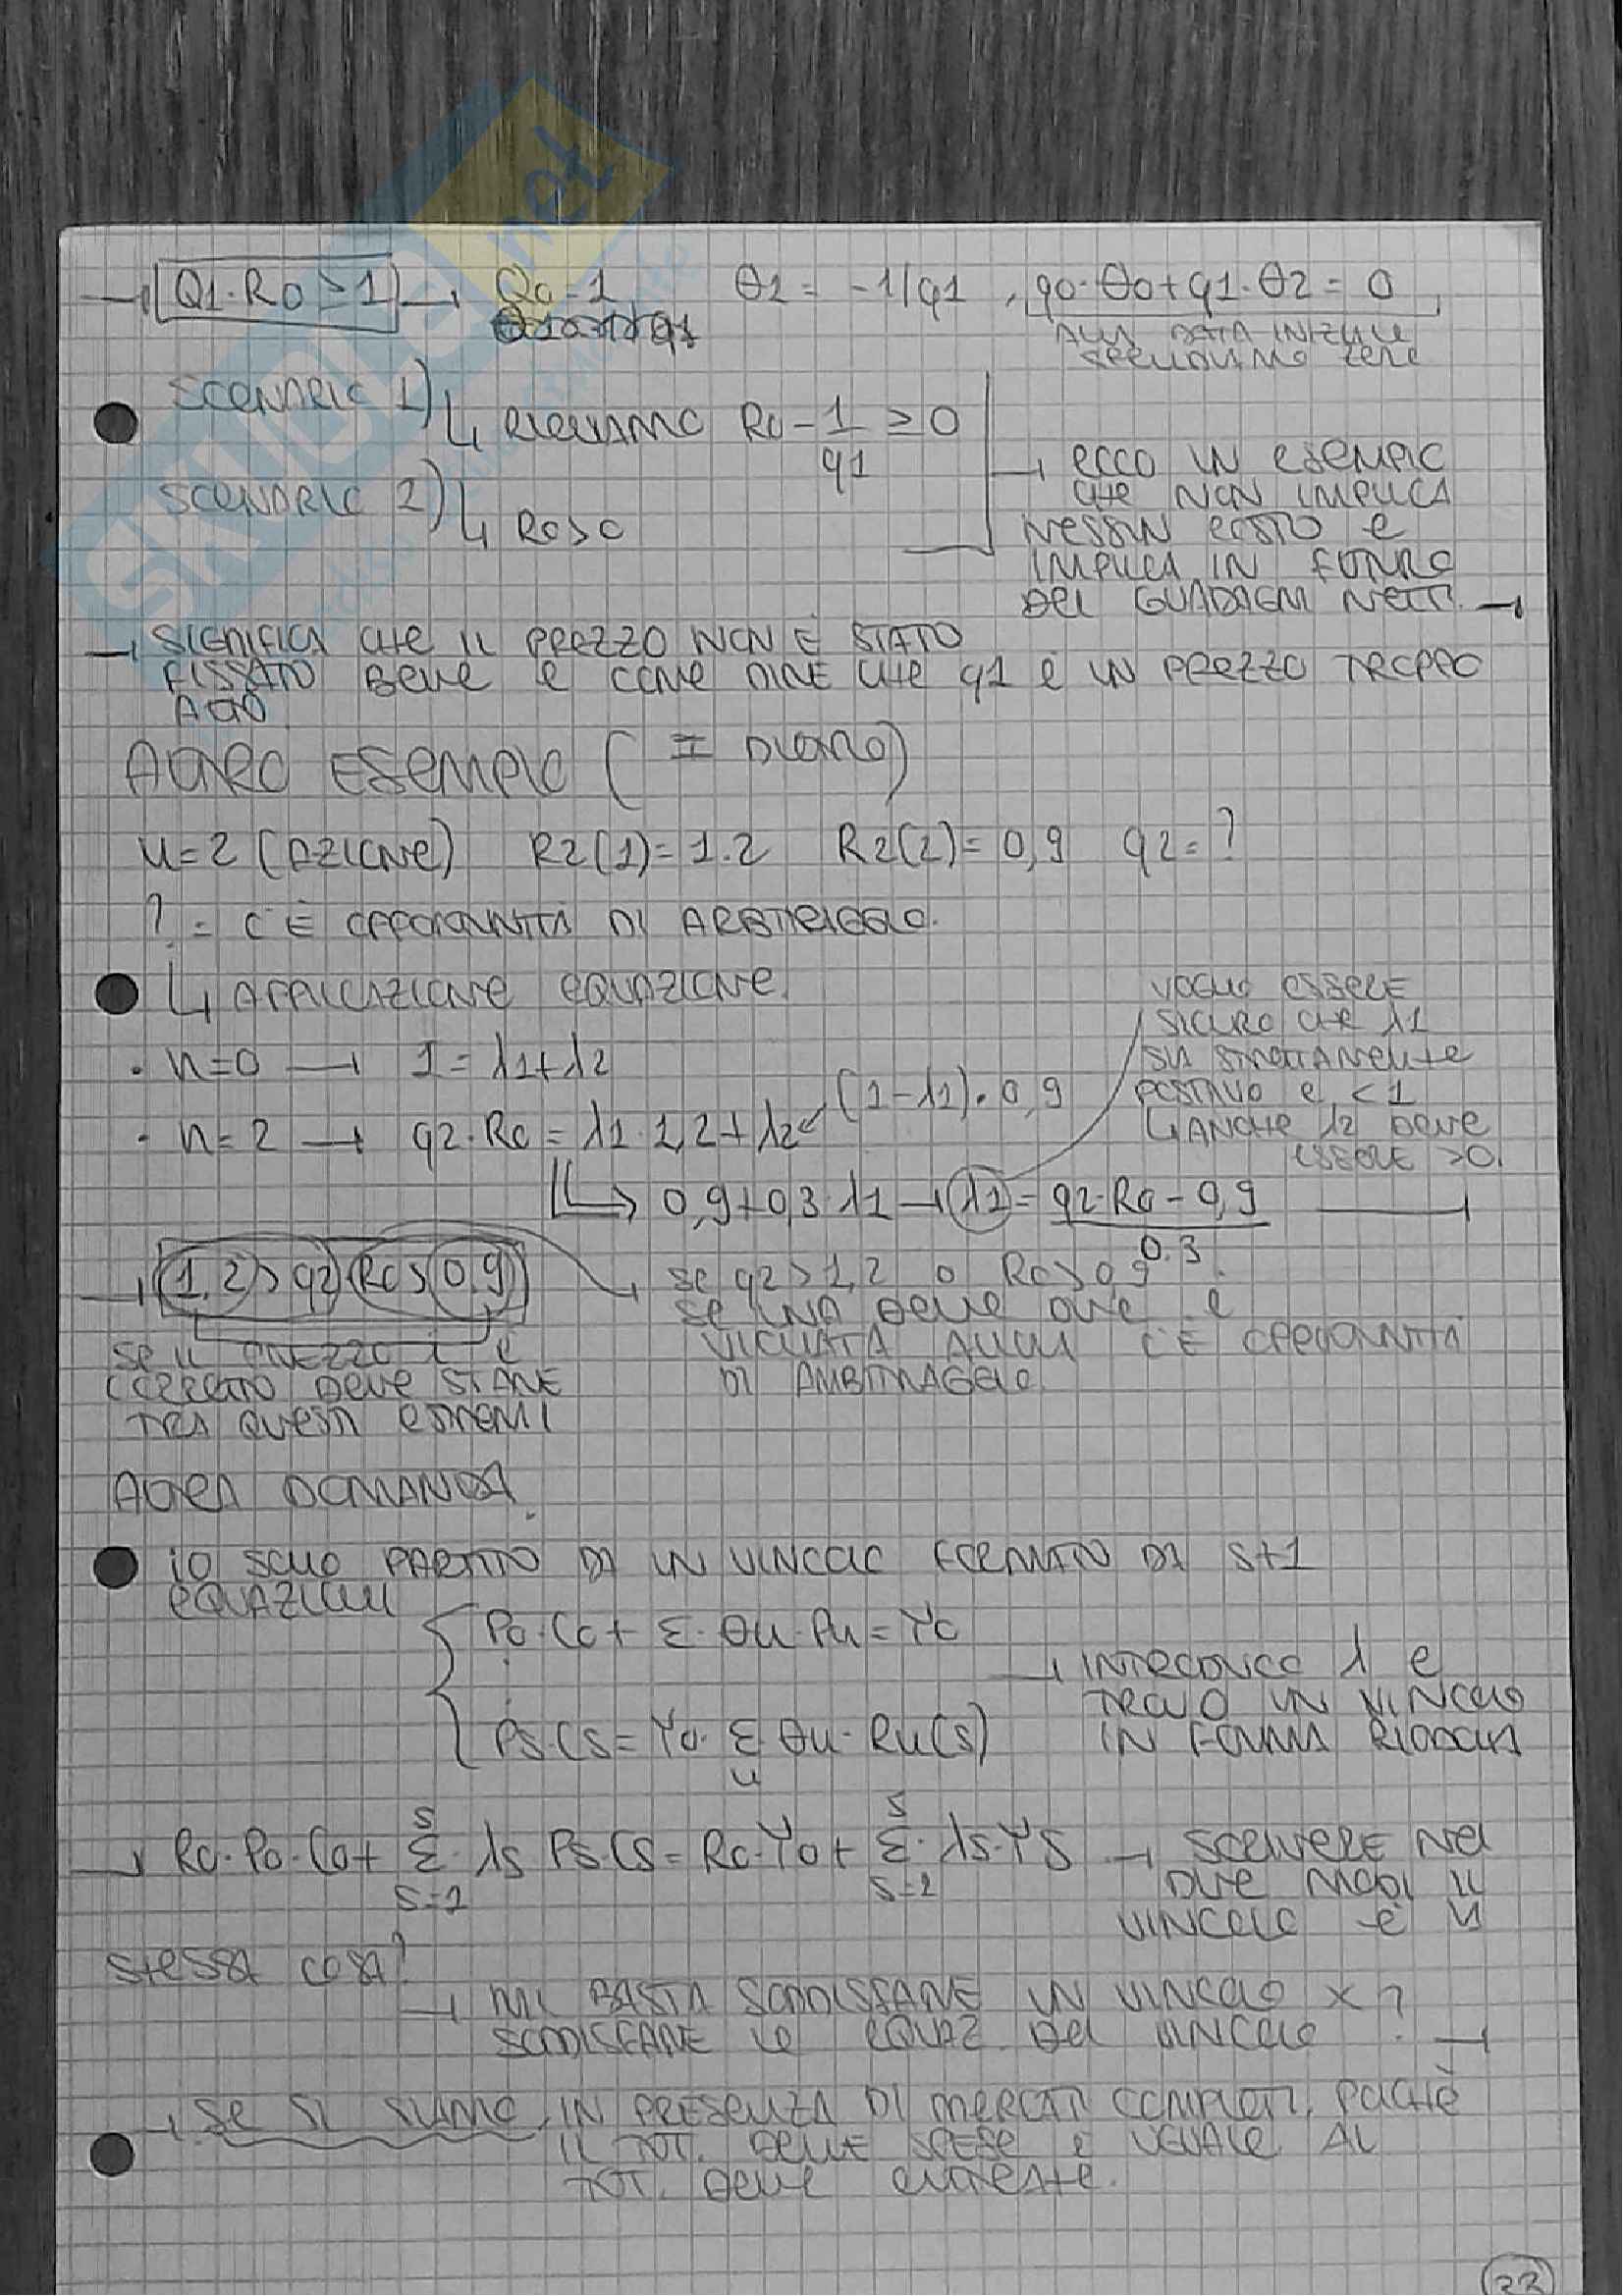 → Q1·R0 ≥ 1 → Q0=1 θ1 = -1/q1 , q0·θ0+q1·θ2 = 0
ALLA DATA INIZIALE
SPENDIAMO ZERO
SCENARIO 1) ↳ RICEVIAMO R0 - 1/q1 ≥ 0
SCENARIO 2) ↳ R0>0
→ ECCO UN ESEMPIO
CHE NON IMPLICA
NESSUN COSTO E
IMPLICA IN FUTURO
DEI GUADAGNI NETTI. →
→ SIGNIFICA CHE IL PREZZO NON È STATO
FISSATO BENE E COME DIRE CHE q1 È UN PREZZO TROPPO
ALTO
ALTRO ESEMPIO (I DIVERSO)
N=2 (AZIONE) R2(1)=1.2 R2(2)=0,9 q2=?
? = C'È OPPORTUNITÀ DI ARBITRAGGIO.
↳ APPLICAZIONE EQUAZIONE.
· n=0 → 1=λ1+λ2
· n=2 → q2·R0 = λ1·1,2+λ2 (1-λ1)·0,9
↳ 0,9+0,3·λ1 → λ1 = q2·R0-0,9 / 0.3 →
VOGLIO ESSERE
SICURO CHE λ1
SIA STRETTAMENTE
POSITIVO E <1
↳ ANCHE λ2 DEVE
ESSERE >0.
→ 1,2> q2 R0> 0,9
→ SE q2>1,2 O R0>0,9
SE UNA DELLE DUE È
VIOLATA ALLORA C'È OPPORTUNITÀ
DI ARBITRAGGIO.
SE IL PREZZO È
CORRETTO DEVE STARE
TRA QUESTI ESTREMI
ALTRA DOMANDA.
IO SONO PARTITO DA UN VINCOLO FORMATO DA S+1
EQUAZIONI
P0·C0+ Σ·θn·Pn = Y0
PS·CS = Y0·Σ θn·Rn(S)
n
→ INTRODUCO λ E
TROVO UN VINCOLO
IN FORMA RIDOTTA
→ R0·P0·C0+ Σ S=1 S ·λS PS·CS = R0·Y0+ Σ S=2 S ·λS·YS → SCRIVERE NEI
DUE MODI IL
VINCOLO È LA
STESSA COSA?
→ MI BASTA SODDISFARE UN VINCOLO X
SODDISFARE LE EQUAZ. DEL VINCOLO ? →
→ SE SI SIAMO IN PRESENZA DI MERCATI COMPLETI, POICHÈ
IL TOT. DELLE SPESE È UGUALE AL
TOT. DELLE ENTRATE.
33
SKUOLA.net